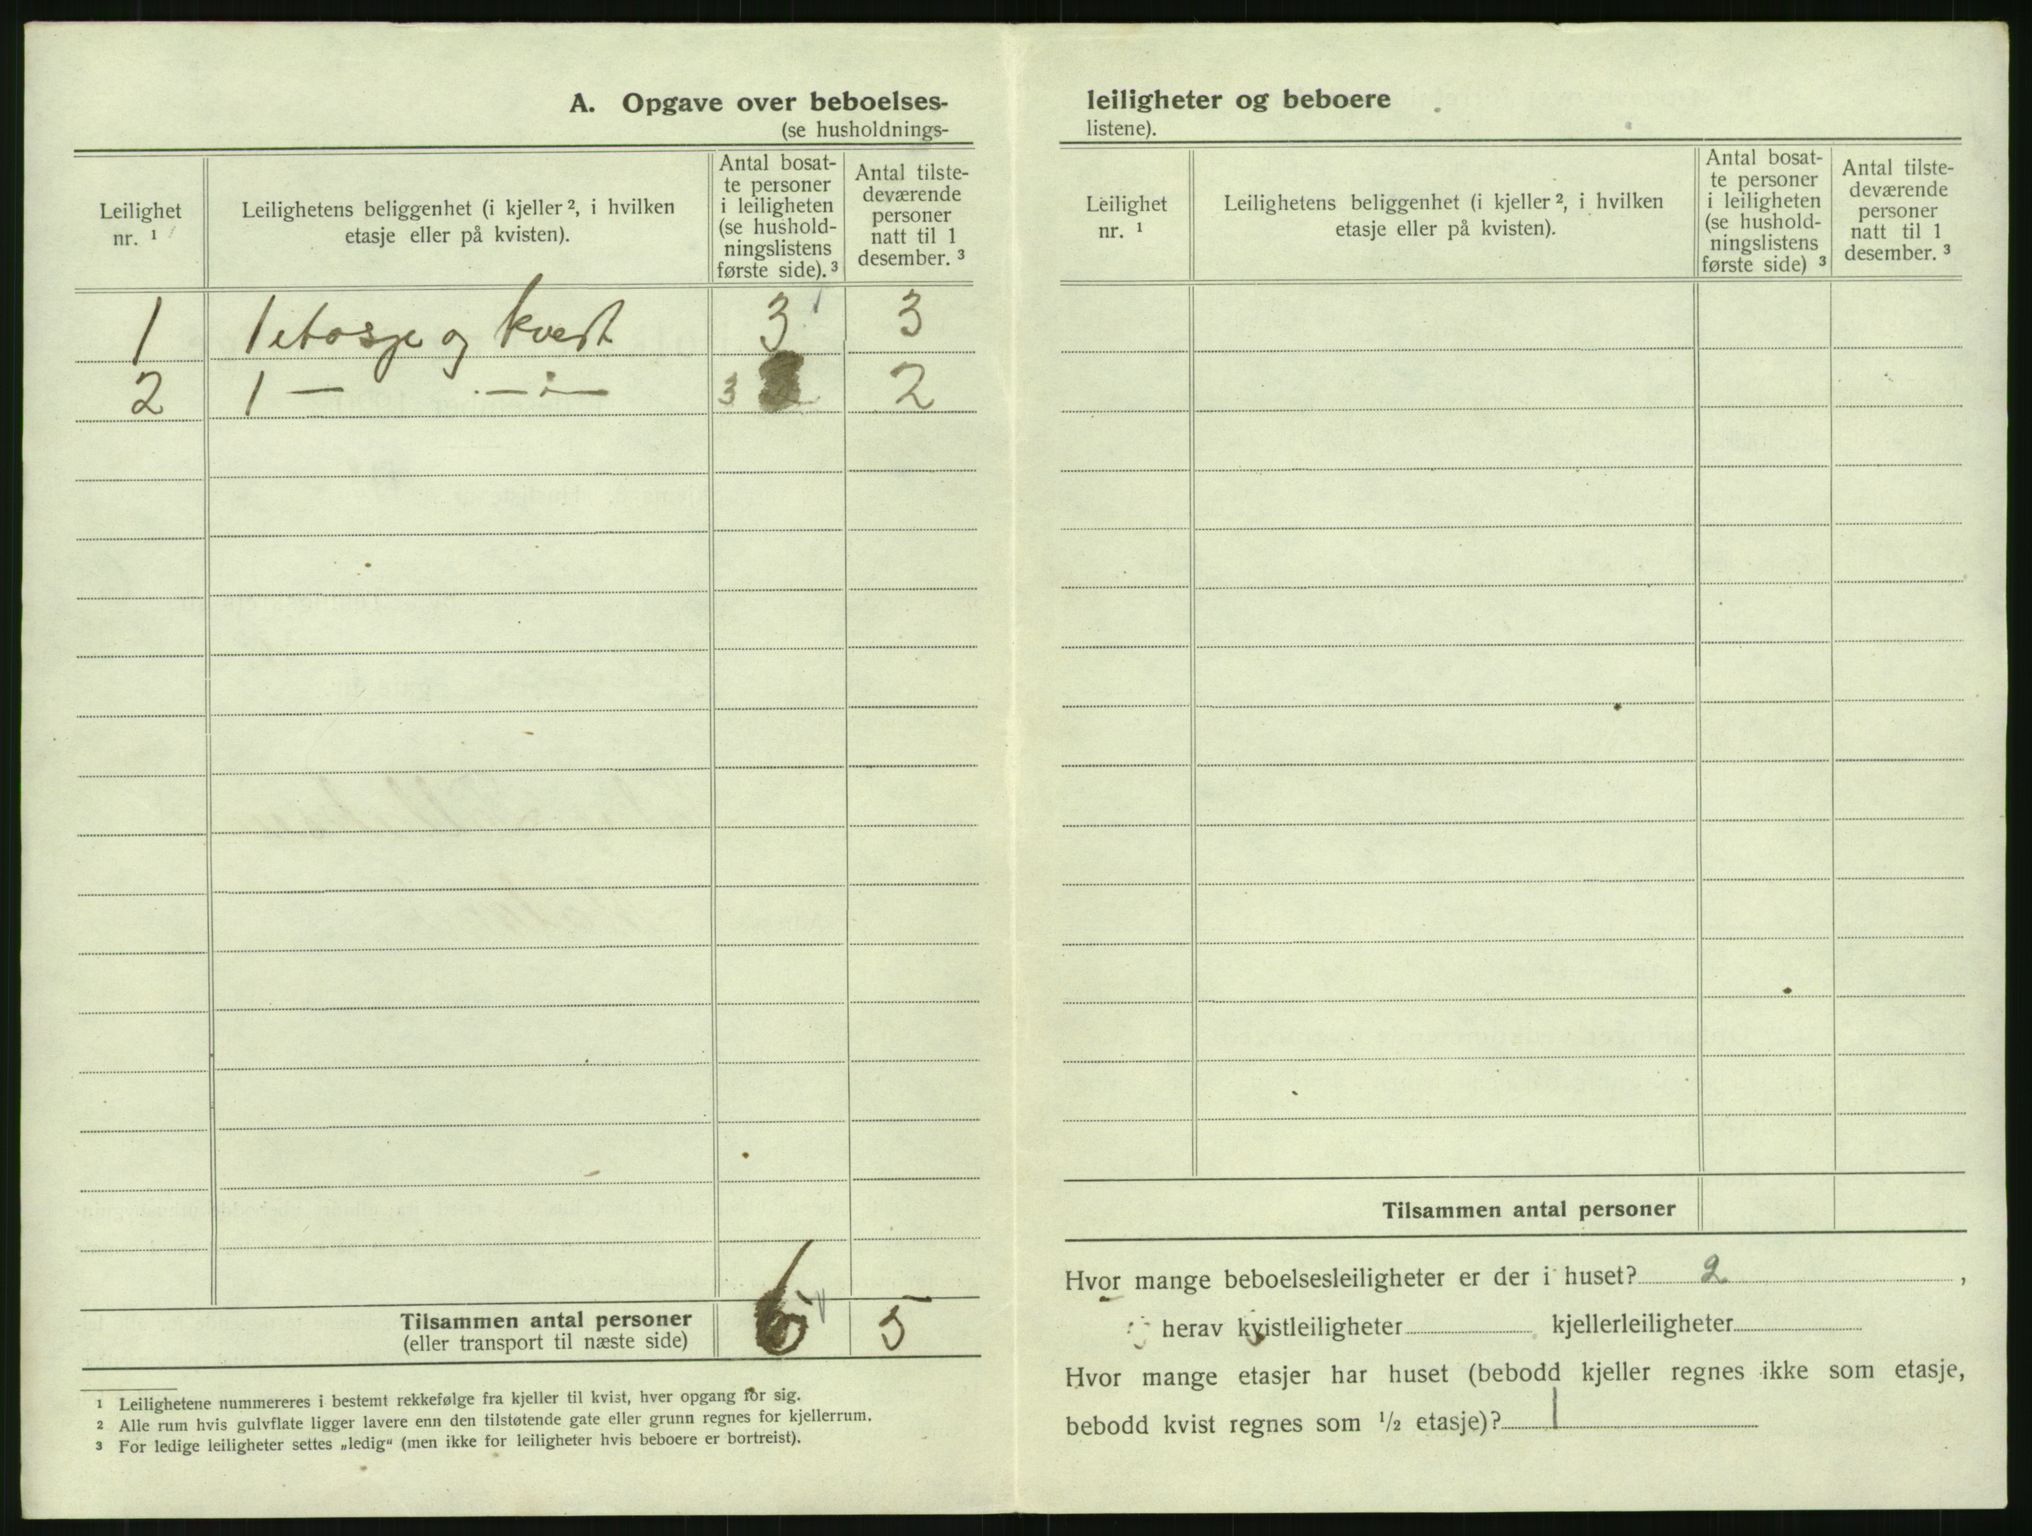 A. Opgave over beboelses-
(se husholdnings-
Leilighet nr. ¹
Leilighetens beliggenhet (i kjeller ², i hvilken
etasje eller på kvisten).
Antal bosat-
te personer
i leiligheten
(se hushold-
ningslistens
første side). ³
Antal tilste-
deværende
personer
natt til 1
desember. ³
1 1 etasje og kvist 3 3
2 1 — — " — 3 2
6 5
Tilsammen antal personer
(eller transport til næste side)
¹ Leilighetene nummereres i bestemt rekkefølge fra kjeller til kvist, hver opgang for sig.
² Alle rum hvis gulvflate ligger lavere enn den tilstøtende gate eller grunn regnes for kjellerrum.
³ For ledige leiligheter settes „ledig" (men ikke for leiligheter hvis beboere er bortreist).
leiligheter og beboere
listene).
Leilighet
nr. ¹
Leilighetens beliggenhet (i kjeller ², i hvilken
etasje eller på kvisten).
Antal bosat-
te personer
i leiligheten
(se hushold-
ningslistens
første side) ³
Antal tilste-
deværende
personer
natt til 1
desember. ³
Tilsammen antal personer
Hvor mange beboelsesleiligheter er der i huset? 2 ,
herav kvistleiligheter kjellerleiligheter
Hvor mange etasjer har huset (bebodd kjeller regnes ikke som etasje,
bebodd kvist regnes som ½ etasje)? 1